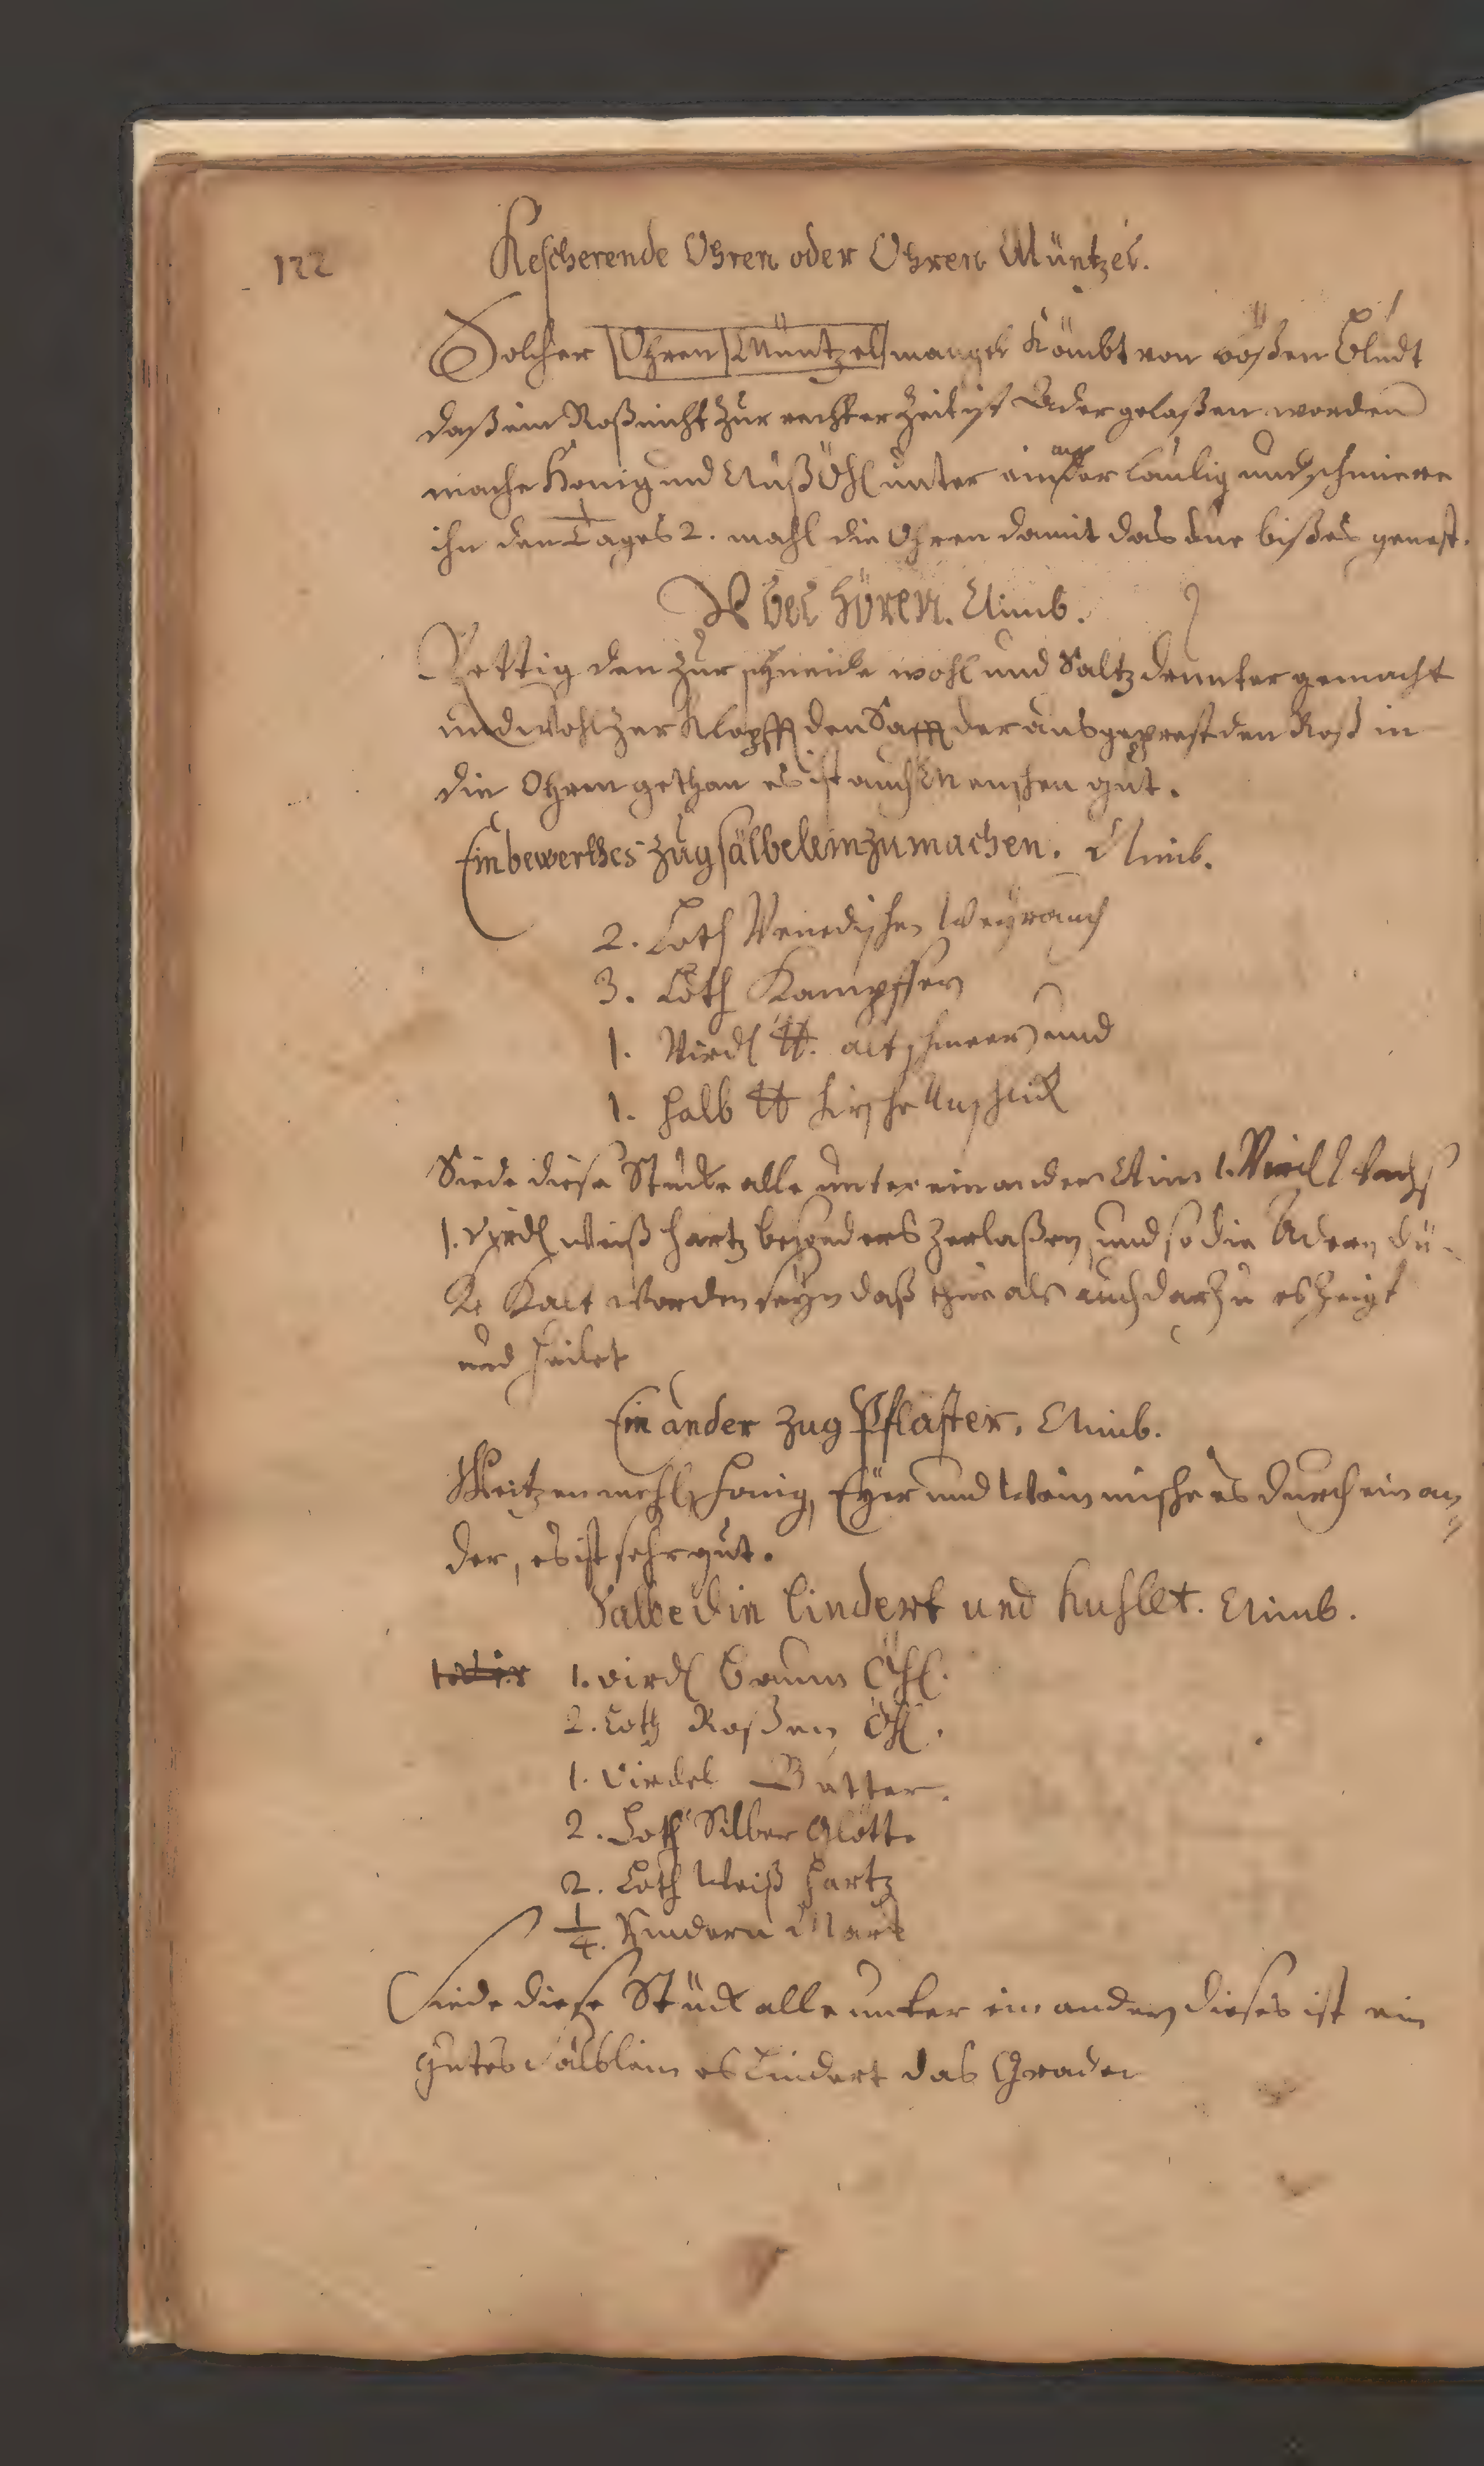 122
Kescherende Ohren oder Ohren Müntzel.
Solcher Ohren Müntzel mangel Kömbt von bößen Bludt
daß ein Roß nicht zur rechter Zeit ist Ader gelaßen worden
mache Honig und Nuß Öhl unter einander laulig und schmiere
ihn den Tages 2. mahl die Ohren damit das due bißes genest.
Vbel hören. Nimb.
Rettig den zur schneide wohl und Saltz drunter gemacht
und wohl zer Klopfft den Safft der ausgeprest den Roß in
die Ohren gethan es ist auch Menschen gut.
Ein bewerthes zug sälbelein zu machen. Nimb.
2. Loth Venedischen Weyrauch
3. Loth Kampffer
1. Virdl ℔. alt schmeer und
1. halb ℔ hirsche Unschlick
Siede diese Stucke alle unter einander Nim 1. Virdl Wachs
1. Virdl Weiß hartz besonders zerlaßen und so die Adern
Kalt worden seyn daß thue als auch darzu es Zeigt
und heilet
Ein ander zug Pflaster. Nimb.
Weitzen mehl, honig, Eyer und Wein mische es durch ein an
der, es ist sehr gut.
Salbe die lindert und kuhlet. Nimb.
1. virdl Baum Öhl.
2. Loth Roßen Öhl.
1. Virdel Butter.
2. Loth Silber Glött.
2. Loth Weiß hartz
1/4. Rindern Mark
Siede diese Stück alle unter ein ander dieses ist ein
gutes Sälblein es Lindert das Grader